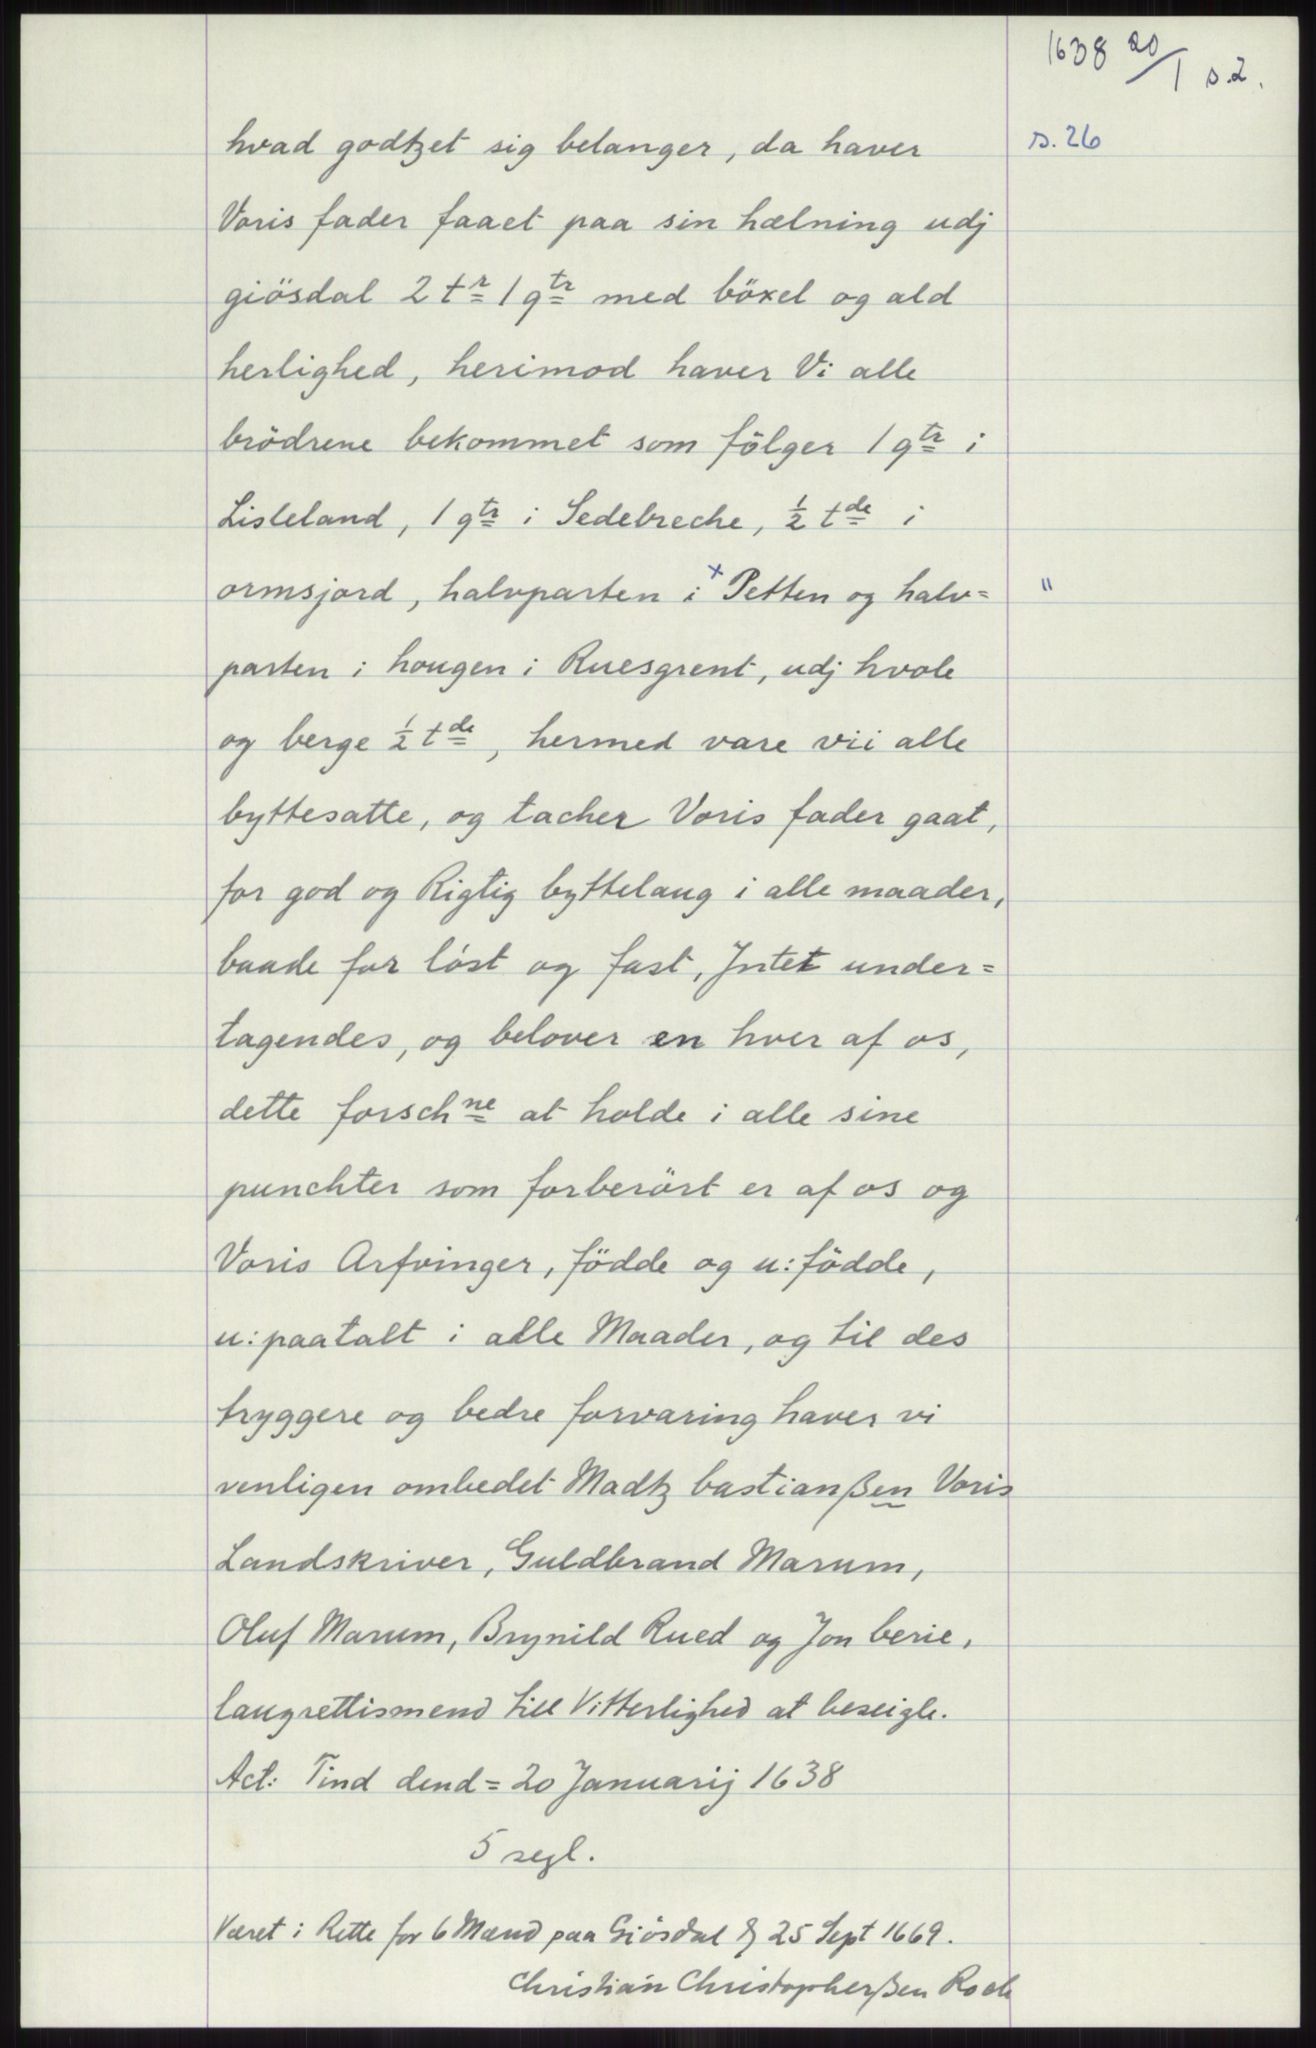 1638 20/1 s.2.
s. 26
hvad godtzet sig belanger, da haver
Voris fader faaet paa sin hælning udj
giösdal 2 tr 1 qtr med böxel og ald
herlighed, herimod haver Vi alle
brödrene bekommet som fölger 1 qtr i
Lisleland, 1 qtr i Sedebreche, ½ tde i
ormsjord, halvparten i x Petten og halv= "
parten i hougen i Ruesgrent, udj hvole
og berge ½ tde, hermed vare vii alle
byttesatte, og tacher Voris fader gaat,
for god og Rigtig byttelaug i alle maader,
baade for löst og fast, Jntet under=
tagendes, og belover en hver af os,
dette forschne at holde i alle sine
punchter som forberört er af os og
Voris Arfvinger, födde og u:födde,
u:paatalt i alle Maader, og til des
tryggere og bedre forvaring haver vi
venligen ombedet Madtz bastianßen Voris
Landskriver, Guldbrand Marum,
Oluf Marum, Brynild Rued og Jon berie,
laugrettismend till Vitterlighed at beseigle.
Act: Tind dend= 20 Januarij 1638
5 segl.
Været i Rette for 6 Mænd paa Giösdal d 25 Sept 1669.
Christian Christopherßen Rode